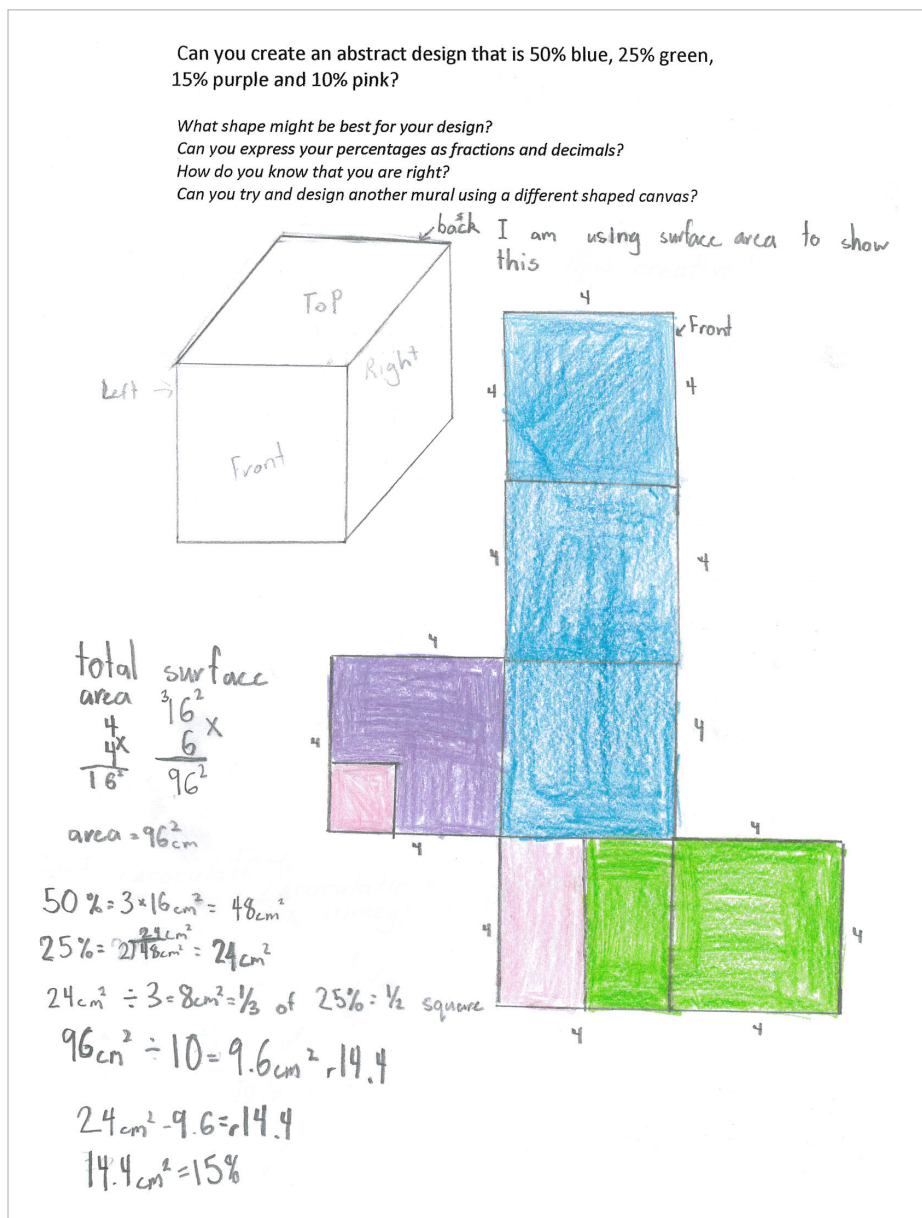 Can you create an abstract design that is 50% blue, 25% green,
15% purple and 10% pink?
What shape might be best for your design?
Can you express your percentages as fractions and decimals?
How do you know that you are right?
Can you try and design another mural using a different shaped canvas?
back
I am using surface area to show
this
Top
Left →
Right
Front
4
Front
4
4
4
4
4
4
4
4
4
4
4
4
4
4
total surface
area
4
4x
16²
³16²
6 x
96²
area = 96cm²
50% = 3×16cm² = 48cm²
24cm²
25% = 2⟌48cm² = 24cm²
24cm² ÷ 3 = 8cm² = 1/3 of 25% = 1/2 square
96cm² ÷ 10 = 9.6cm² r14.4
24cm² - 9.6 = r14.4
14.4cm² = 15%